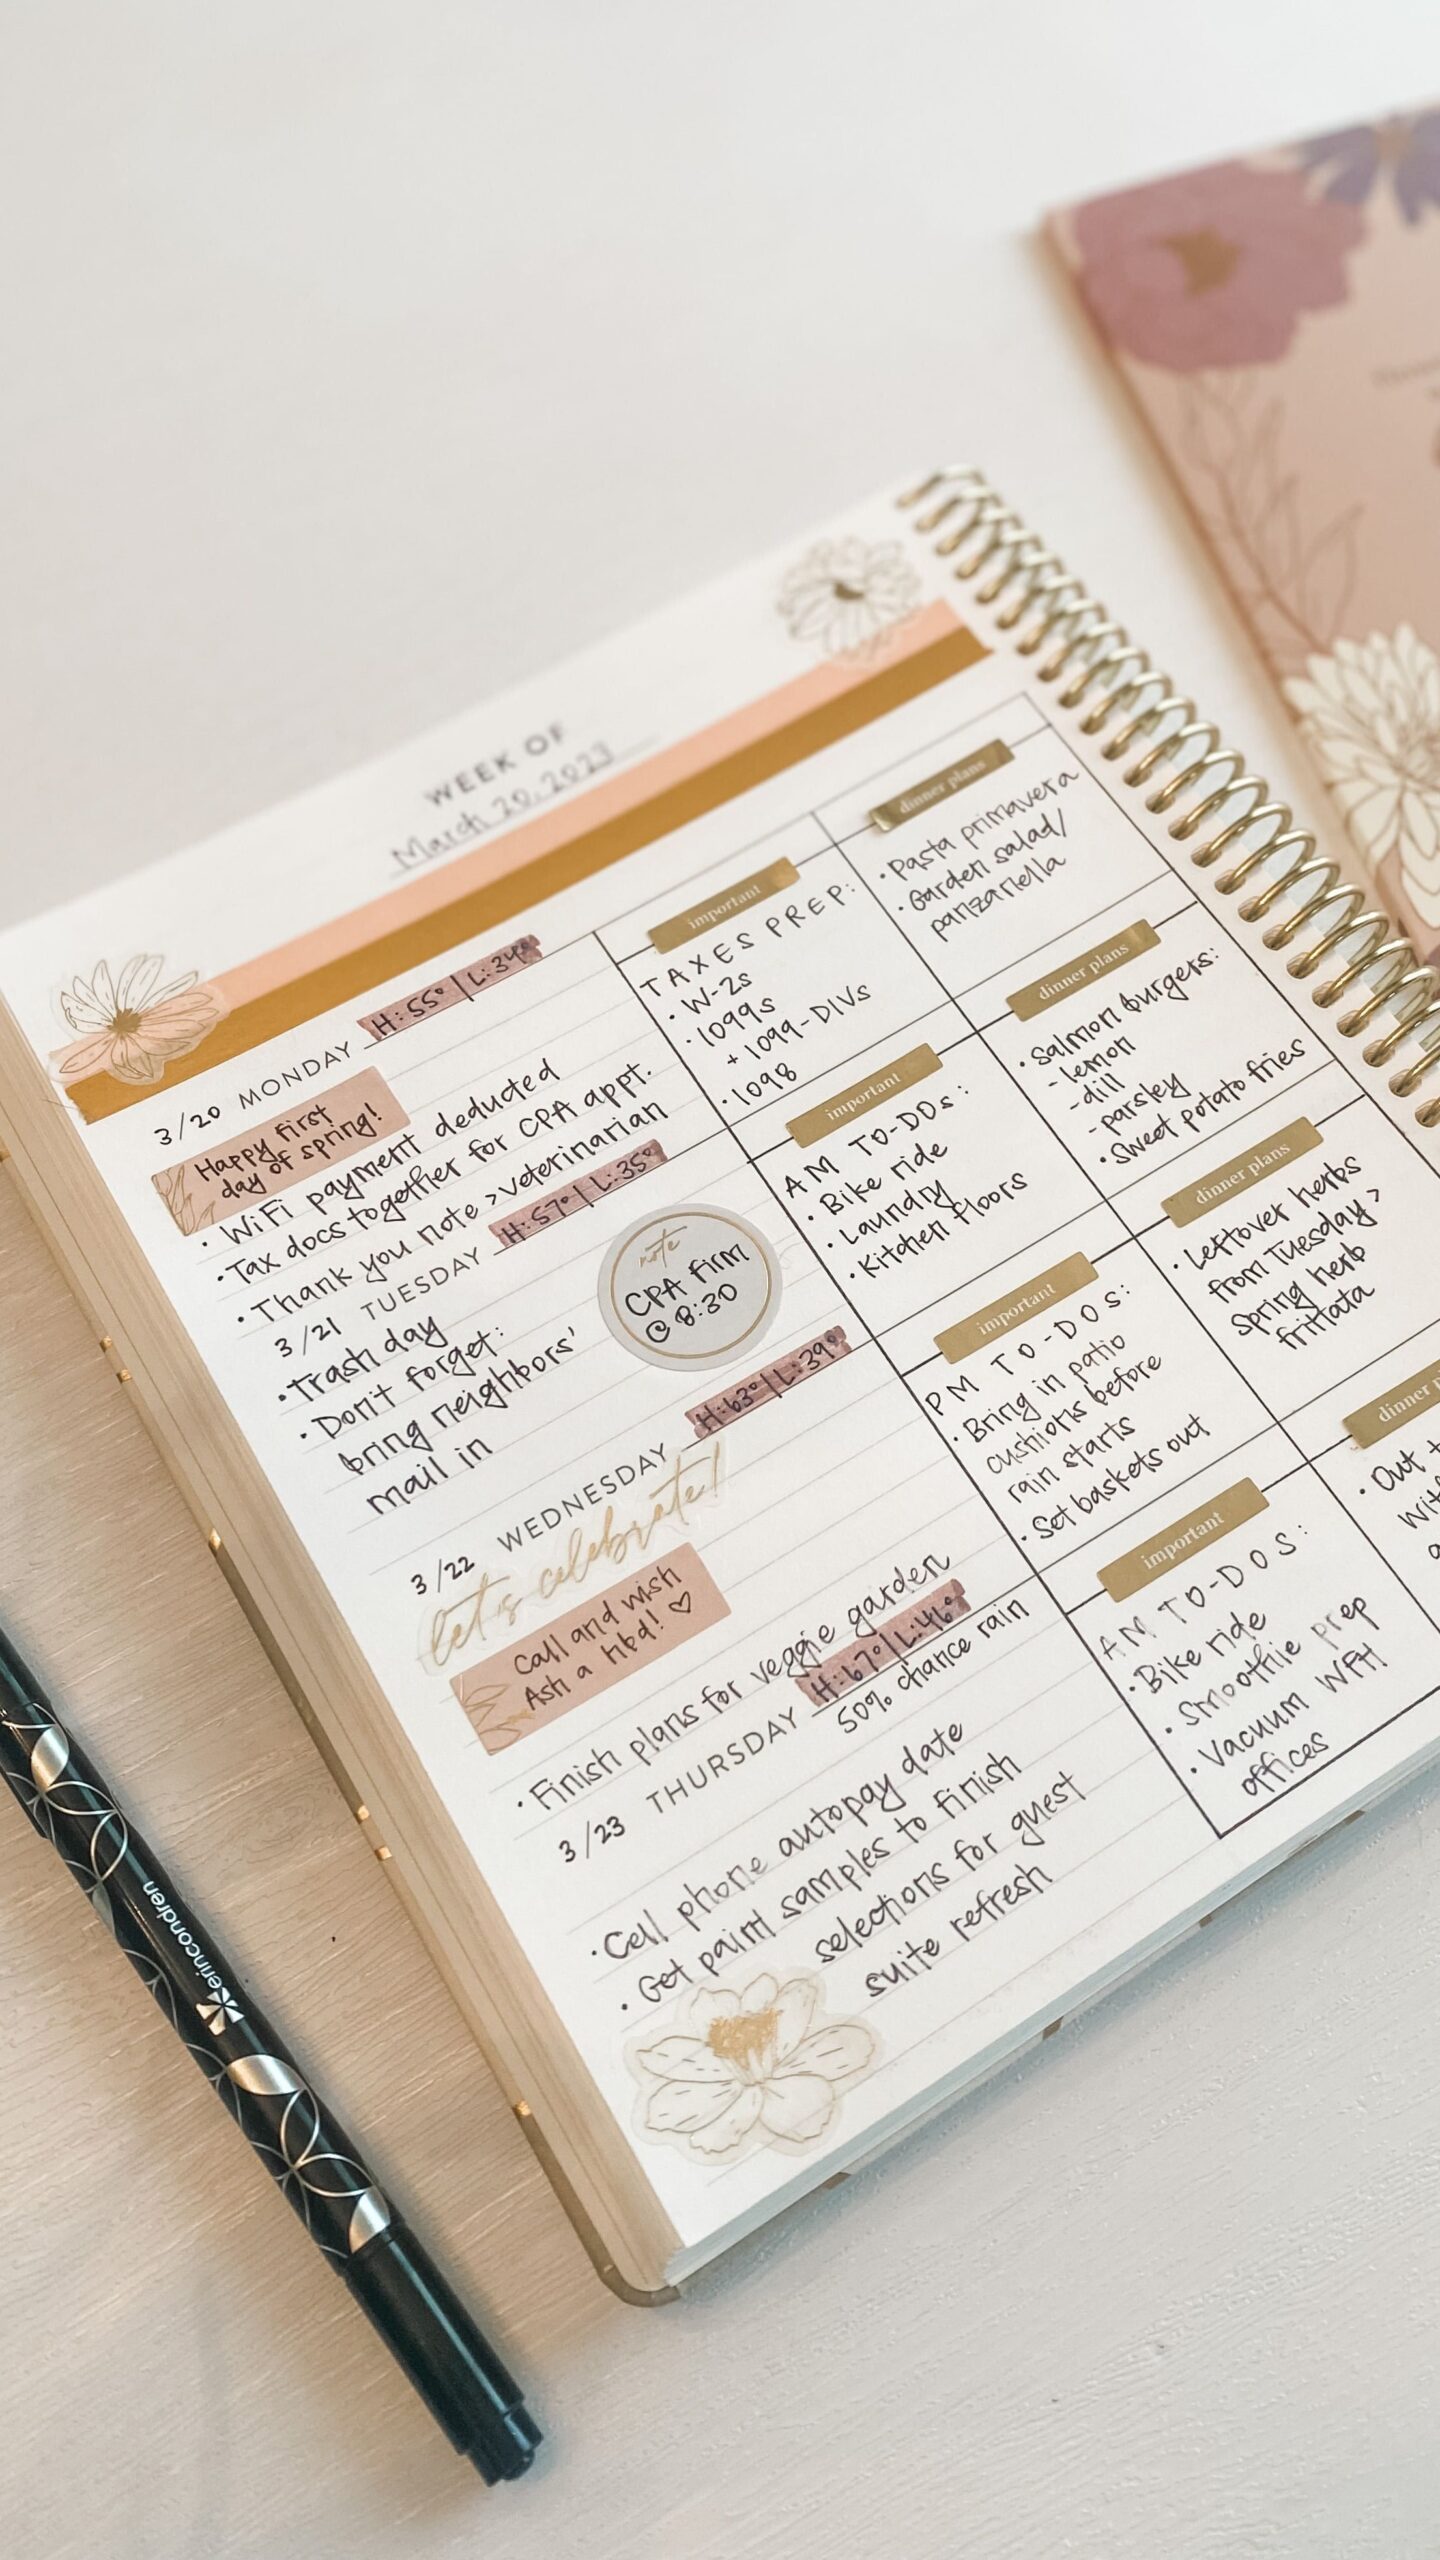 WEEK OF
March 20, 2023
3/20 MONDAY H: 55° | L: 34°
Happy first
day of spring!
• WiFi payment deducted
• Tax docs together for CPA appt.
• Thank you note > veterinarian
important
TAXES PREP:
• W-2s
• 1099s
+ 1099-DIVs
• 1098
dinner plans
• Pasta primavera
• Garden salad/
panzanella
3/21 TUESDAY H: 57° | L: 35°
• Trash day
• Don't forget:
bring neighbors'
mail in
note
CPA firm
@ 8:30
important
AM TO-DOs:
• Bike ride
• Laundry
• Kitchen floors
dinner plans
• Salmon burgers:
- lemon
- dill
- parsley
• Sweet potato fries
3/22 WEDNESDAY H: 63° | L: 39°
let's celebrate!
Call and wish
Ash a hbd! ♡
• Finish plans for veggie garden
important
PM TO-DOs:
• Bring in patio
cushions before
rain starts
• Set baskets out
dinner plans
• Leftover herbs
from Tuesday >
Spring herb
frittata
3/23 THURSDAY H: 67° | L: 46°
50% chance rain
• Cell phone autopay date
• Get paint samples to finish
selections for guest
suite refresh
important
AM TO-DOs:
• Bike ride
• Smoothie prep
• Vacuum WFH
offices
dinner
• Out
erincondren